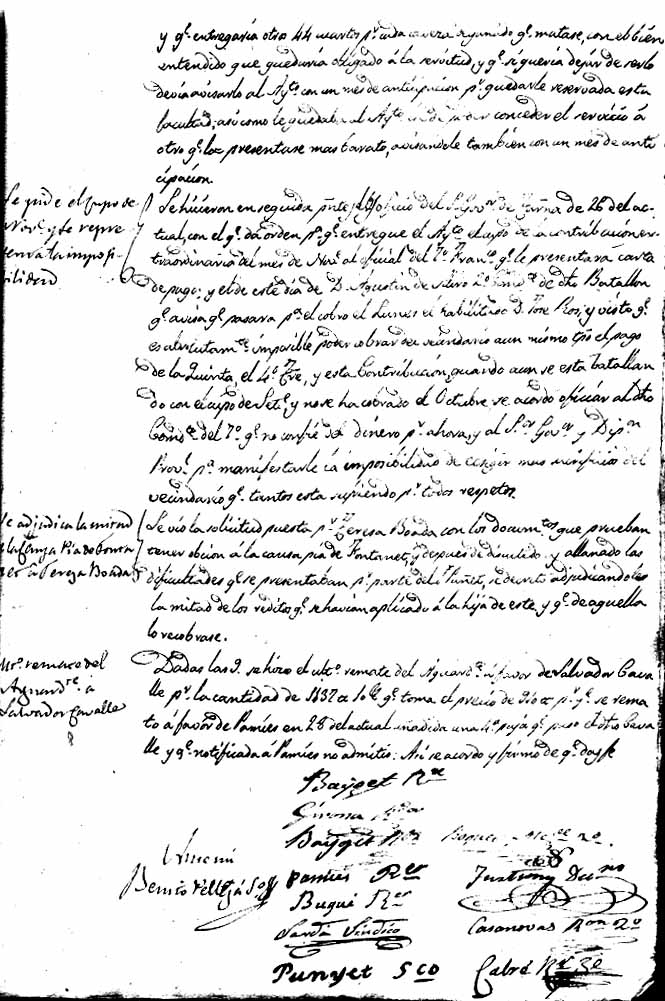 y qᵉ entregaria otros 44 cuartos pʳ cada cavera de ganado qᵉ matase, con el bien
entendido que quedaria obligado á la servitud, y qᵉ si queria dejar de serlo
devia avisarlo al Aytᵒ con un mes de anticipacion pʳ quedarle reservada esta
facultad; asi como le quedaba al Aytᵒ la de poder conceder el servicio á
otro qᵉ lo presentase mas barato, avisandole tambien con un mes de anti
cipacion.
Se pide el cupo de
Novᵉ y se repre
senta la imposi-
bilidad
Se hicieron en seguida pnte el oficio del Sʳ Govʳ de de 26 del ac-
tual, con el qᵉ da orden pᵃ qᵉ entregue el Aytᵒ el cupo de la contribucion ex-
traordinaria del mes de Novᵉ al oficial del 7º Francᵒ qᵉ le presentara carta
de pago; y el de este dia de D. Agustin de 2º Comdᵗᵉ de dho Batallon
qᵉ avisa qᵉ pasara pᵃ el cobro el Lunes el habilitado D. Jose Ros; y visto qᵉ
es absolutamᵗᵉ imposible poder cobrar del vecindario a un mismo tpo el pago
de la Quinta, el 4º Tre, y esta Contribucion, quando aun se esta batallan
do con el cupo de Setᵉ y no se ha cobrado el Octubre, se acordo oficiar al dho
Comdᵗᵉ del 7º qᵉ no confie del dinero pʳ ahora, y al Sᵒʳ Govʳ y Dipᵒⁿ
Provˡ pᵃ manifestarle la imposibilidad de exigir mas sacrificios del
vecindario qᵉ tantos esta sufriendo pʳ todos respetos.
Se adjudica la mitad
de la Causa Pia de Fonta
net á Teresa Boada
Se vió la solicitud puesta pʳ Teresa Boada con los documᵗᵒˢ que prueban
tener obcion a la causa pia de Fontanet, y despues de discutido y allanado las
dificultades qᵉ se presentaban pʳ parte del Sʳ Punet, se decretó adjudicandoles
la mitad de los reditos qᵉ se havian aplicado á la hija de este, y qᵉ de aquella
lo recobrase.
Ultᵒ remate del
Aguardᵗᵉ á
Salvador Cavalle
Dadas las 9. se hizo el ultᵒ remate del Aguardᵗᵉ á favor de Salvador Cava
lle pʳ la cantidad de qᵉ toma el precio de pʳ qᵉ se rema
to á favor de Pamies en 28 del actual añadida una 4ᵃ puja qᵉ puso el dho Cava
lle y qᵉ notificada á Pamies no admitio: Asi se acordo y firmo de qᵉ doy fe
Bayget Rᵒʳ
Girona
Bayget Rᵒʳ
Ante mi
Benito Vellez á Sᵒ
Pamies Rᵒʳ
Buqué Rᵒʳ
Sardá Sindico
Casanovas Rᵒʳ 2º
Punyet Sᶜᵒ
Cabré Rᵒʳ 3º